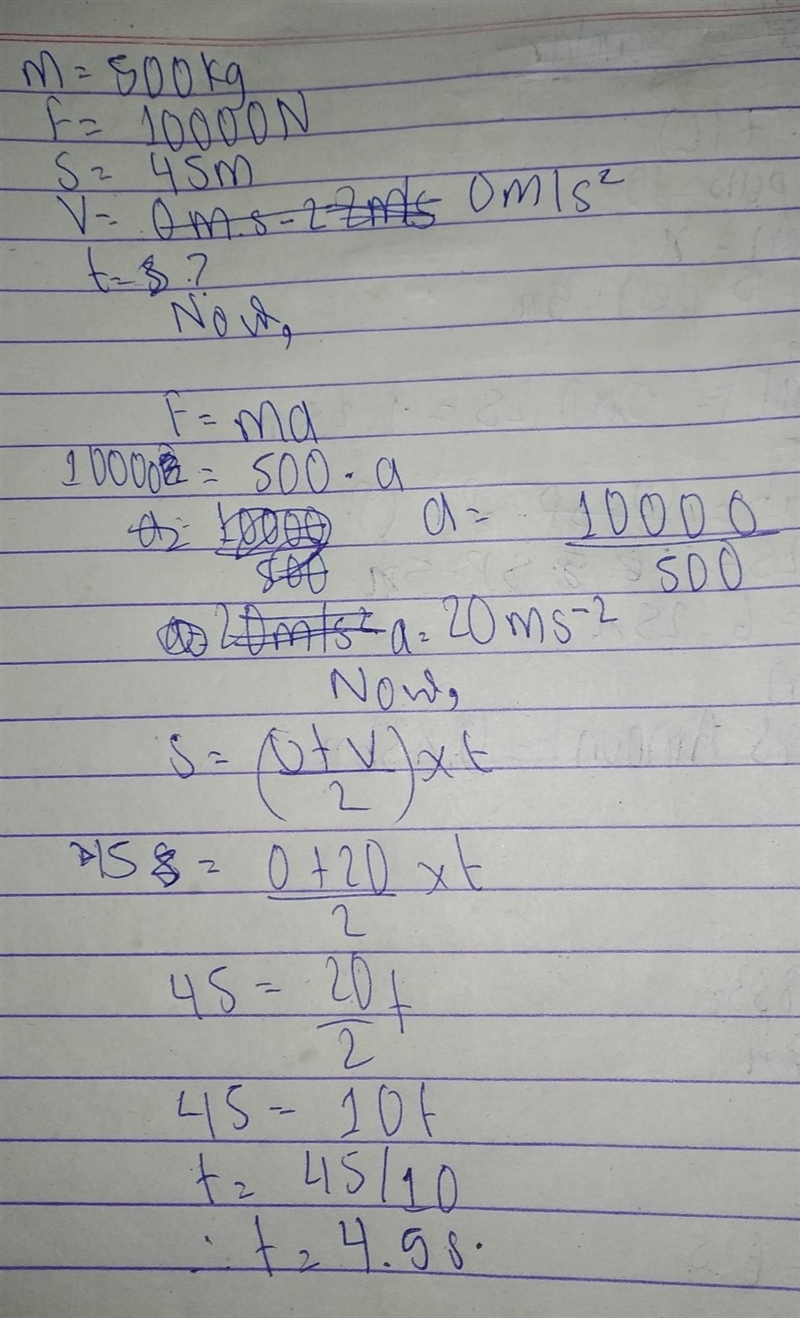 m = 500kg
F = 10000N
S = 45m
V = 0m.s-2 2m/s 0m/s²
t = ?
Now,
F = ma
10000 = 500 · a
a = 10000/500 a = 10000/500
a = 20m/s² a = 20ms⁻²
Now,
S = (U+V/2) x t
45 = 0+20/2 x t
45 = 20/2 t
45 = 10t
t = 45/10
∴ t = 4.5s.